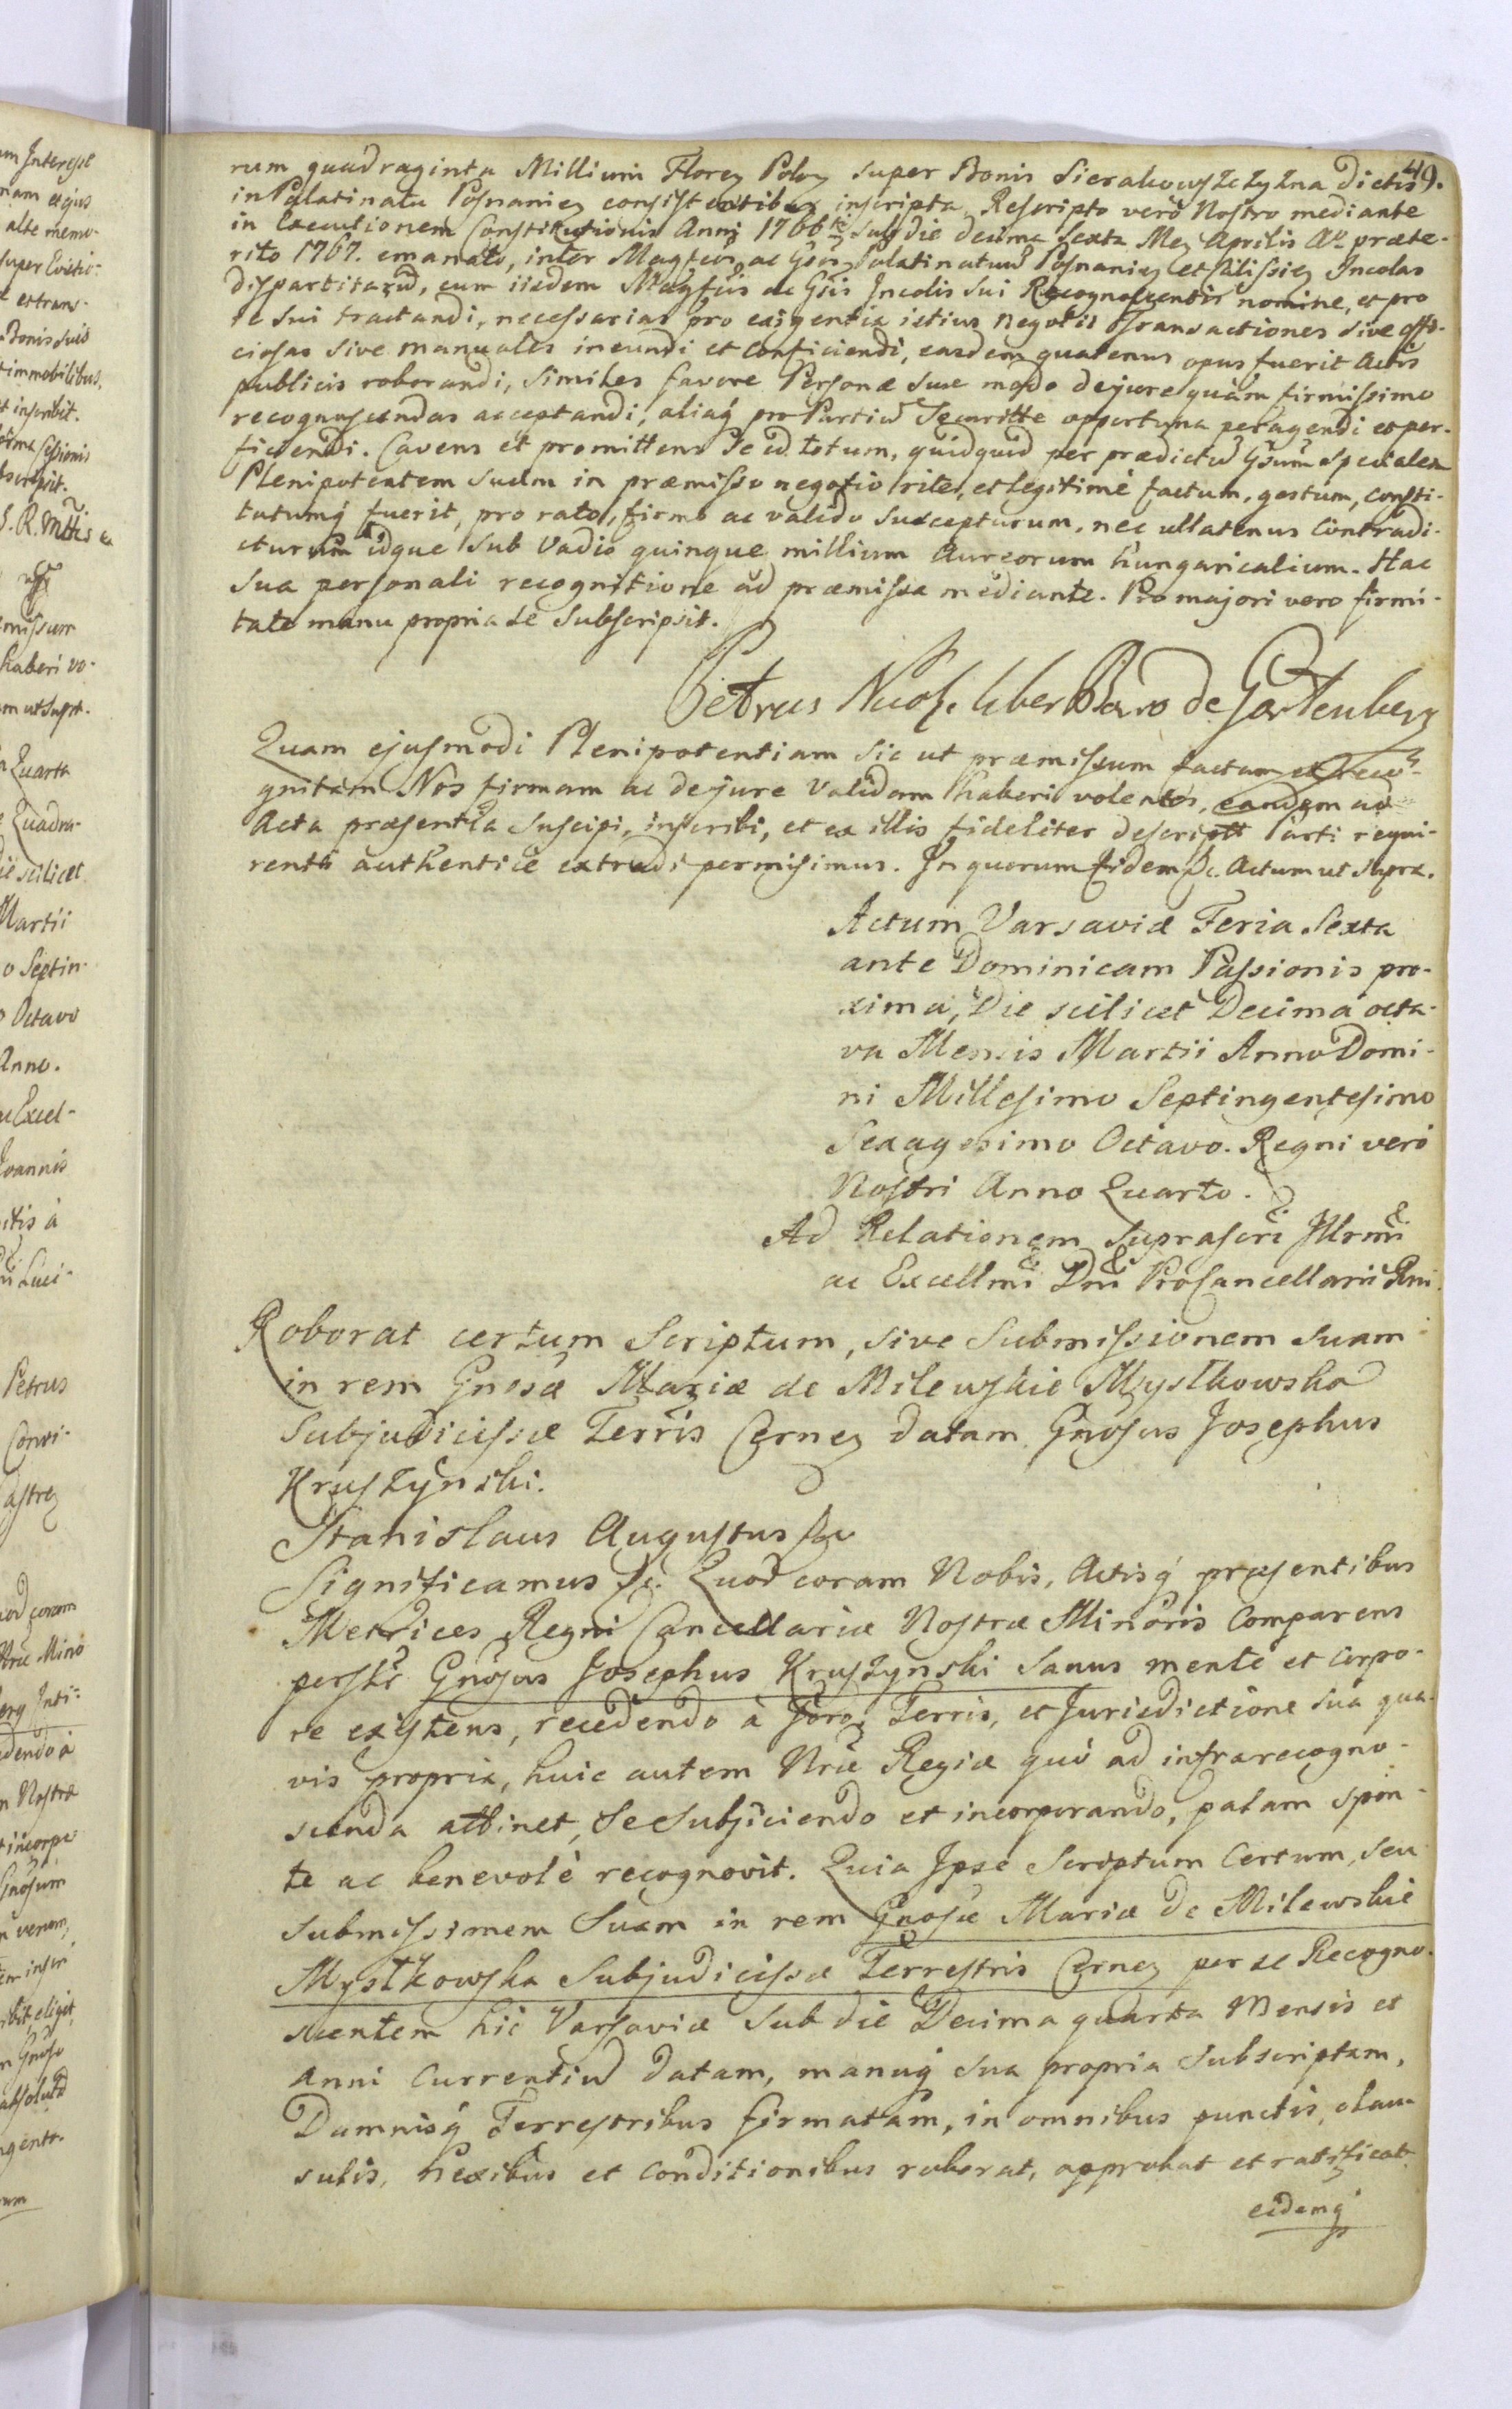 49.
rum quadraginta Millium Floreɳ Poloɳ super Bonis Sierakowszczyzna dictis
in Palatinatu Posnanieɳ consistentibus inscripta, Rescripto verò Nostro mediante
in Executionem Constitutionis Anni 1766ti sub die decima sexta Meɳ Aprilis Ao præte-
rito 1767. emanato, inter Magfcos ac Gsos Palatinatuum Posnanieɳ et Calissieɳ Incolas
dispartitarum, cum iisdem Magfcis ac Gsis Incolis sui Recognoscentis nomine, et pro
se sui tractandi, necessarias pro exigentia istius negotii Transactiones sive offi-
ciosas sive manuales ineundi et conficiendi, easdem quatenus opus fuerit Actis
publicis roborandi, similes favore Personæ suæ modo dejure quàm firmissimo
recognoscendas acceptandi, aliaq́ pro Partium Securitte opportuna peragendi et per-
ficiendi. Cavens et promittens Se id totum, quidquid per prædictum Gsum specialem
Plenipotentem suum in præmisso negotio ritè, et legitimè factum, gestum, consti-
tutumq́ fuerit, pro rato, firmo ac valido suscepturum, nec ullatenus contradi-
cturum idque sub Vadio quinque millium Aureorum hungaricalium. Hac
sua personali recognitione ad præmissa mediante. Pro majori vero firmi-
tate manu propria se subscripsit.
Petrus Nicol. liber Baro de Gartenberg
Quam ejusmodi Plenipotentiam sic ut præmissum factam et reco-
gnitam Nos firmam ac dejure validam haberi volentes, eandem ad
Acta præsentia suscipi, inscribi, et ex illis fideliter descriptt Parti requi-
renti authenticè extradi permisimus. In quorum fidem &c. Actum ut supra.
Actum Varsaviæ Feria Sexta
ante Dominicam Passionis pro-
xima, Die scilicet Decima octa-
va Mensis Martii Anno Domi-
ni Millesimo Septingentesimo
Sexagesimo Octavo. Regni verò
Nostri Anno Quarto.
Ad Relationem suprascri Illrmi
ac Excellmi Dni ProCancellarii Rni.
Roborat certum Scriptum, sive Submissionem suam
in rem Gnosæ Mariæ de Milewskie Mystkowska
Subjudicissæ Terris Cerneɳ datam Gnosus Josephus
Kruszynski.
Stanislaus Augustus &c
Significamus &c. Quod coram Nobis, Actisq́ præsentibus
Metrices Regni Cancellariæ Nostræ Minoris Comparens
persltr Gnosus Josephus Kruszynski sanus mente et corpo-
re existens, recedendo à Foro, Terris, et Jurisdictione sua qua-
vis propria, huic autem Nræ Regiæ quò ad infrarecogno-
scenda attinet, se subjiciendo et incorporando, palam spon-
te ac benevolè recognovit. Quia Ipse Scriptum Certum, seu
submissimem Suam in rem Gnosæ Mariæ de Milewskie
Mystkowska Subjudicissæ Terrestris Cerneɳ per se Recogno-
scentem hic Varsaviæ sub die Decima quarta Mensis et
Anni Currentium datam, manuq́ sua propria subscriptam,
Damnisq́ Terrestribus firmatam, in omnibus punctis, clau-
sulis, nexibus et conditionibus roborat, approbat et ratificat
eidemq́